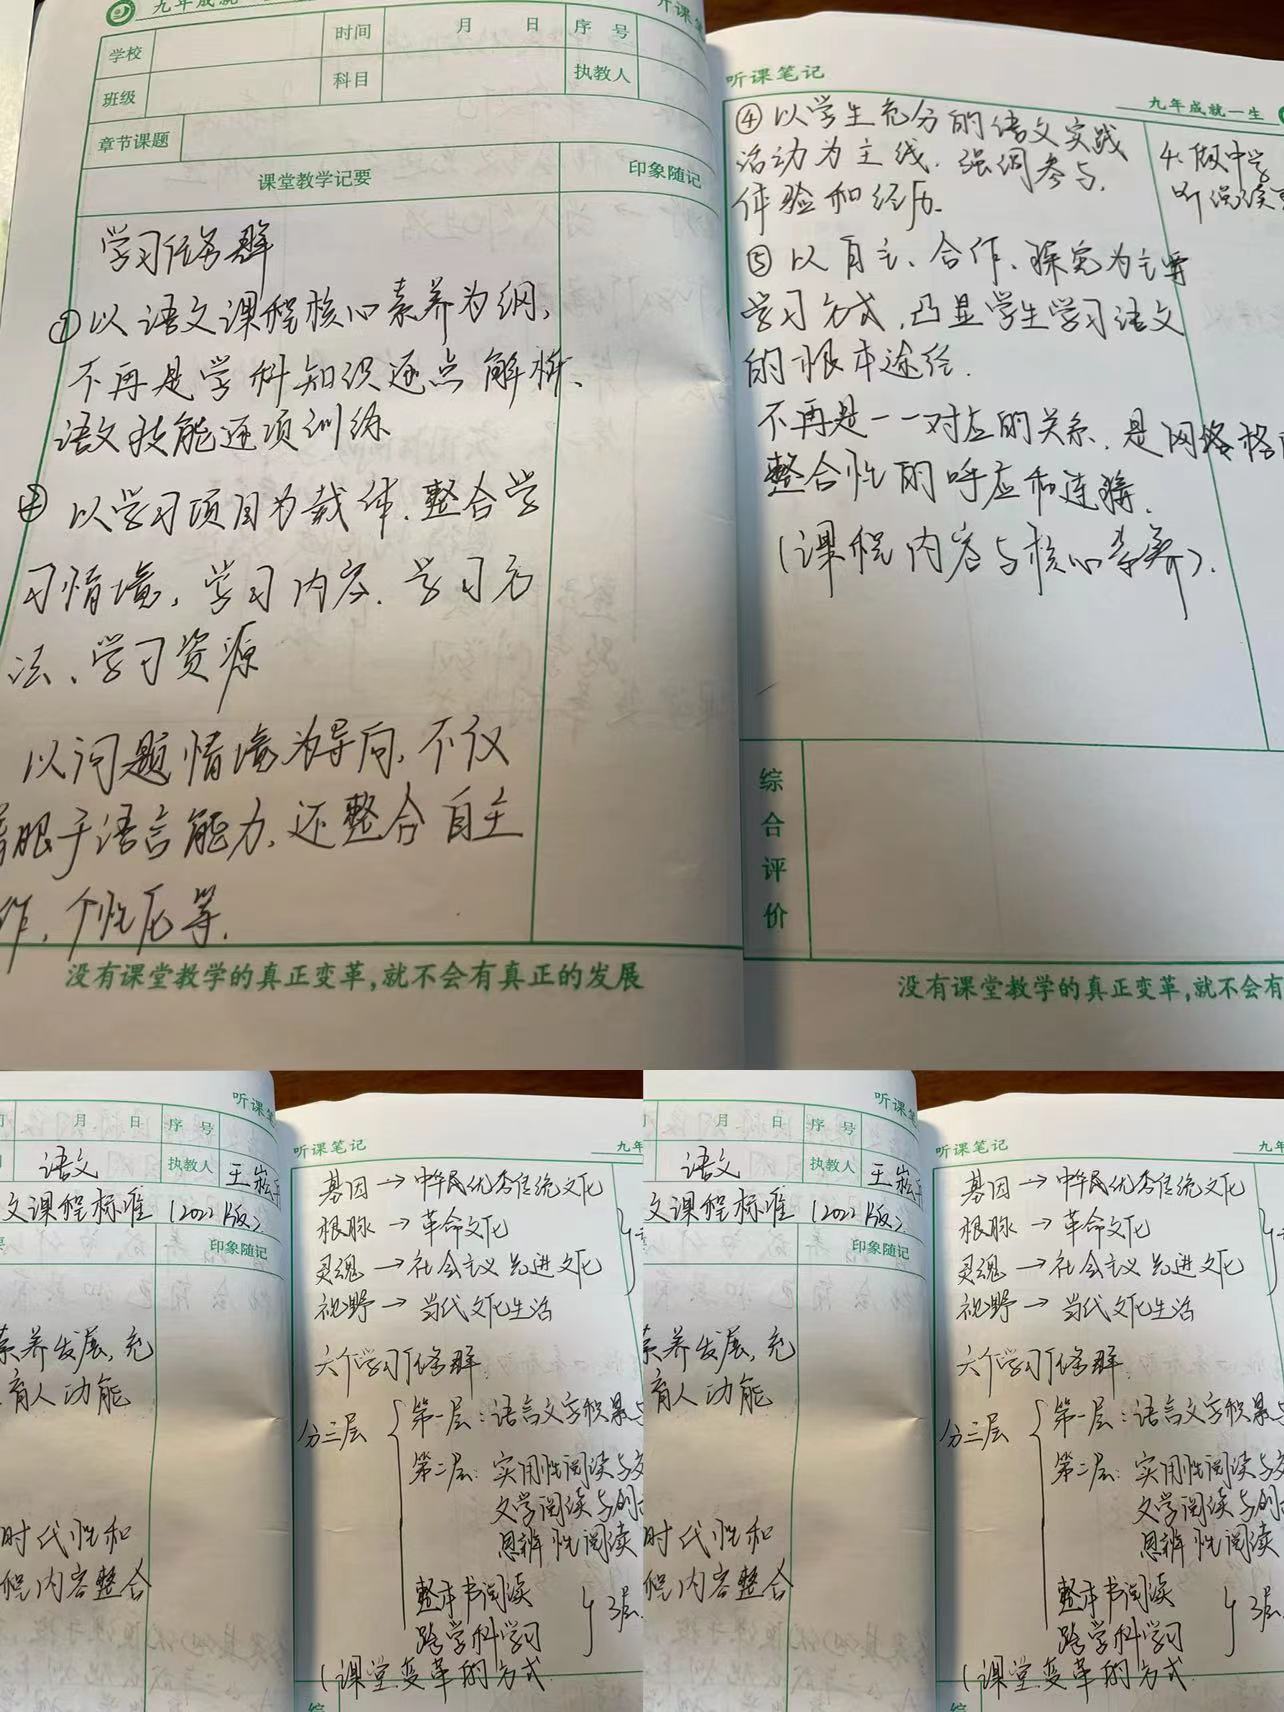 九年成就一
听课笔
学校
时间
月 日
序 号
班级
科目
执教人
章节课题
课堂教学记要
印象随记
学习任务群
①以语文课程核心素养为纲,
不再是学科知识逐点解析、
语文技能逐项训练
以学习项目为载体.整合学
习情境,学习内容.学习方
法、学习资源
以问题情境为导向.不仅
着眼于语言能力.还整合自主
作.个性化等.
没有课堂教学的真正变革,就不会有真正的发展
听课笔记
九年成就一生
④以学生充分的语文实践
活动为主线.强调参与.
体验和经历.
4.做中学
听说读
⑤以自主、合作、探究为主导
学习方式,凸显学生学习语文
的根本途径.
不再是一一对应的关系.是网络格
整合性的呼应和连接.
(课程内容与核心素养).
综
合
评
价
没有课堂教学的真正变革,就不会有
听课笔
月 日
序 号
语文
执教人
王崧
文课程标准(2022版)
印象随记
素养发展,充
育人功能
时代性和
程内容整合
听课笔记
九年
基因→中华民优秀传统文化
根脉→革命文化
灵魂→社会主义先进文化
视野→当代文化生活
六个学习任务群
分三层
第一层:语言文字积累与
第二层:实用性阅读与交
文学阅读与创
思辨性阅读
整本书阅读
跨学科学习
3层
(课堂变革的方式
综
听课笔
月 日
序 号
语文
执教人
王崧
文课程标准(2022版)
印象随记
素养发展,充
育人功能
时代性和
程内容整合
听课笔记
九年
基因→中华民优秀传统文化
根脉→革命文化
灵魂→社会主义先进文化
视野→当代文化生活
六个学习任务群
分三层
第一层:语言文字积累与
第二层:实用性阅读与交
文学阅读与创
思辨性阅读
整本书阅读
跨学科学习
3层
(课堂变革的方式
综